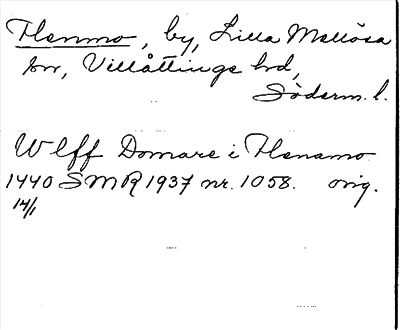 Flenmo, by, Lilla Mellösa
sn, Villåttinge hd,
Söderm. l.
Wlff Domare i Flenamo
1440 SMR 1937 nr. 1058. orig.
14/1